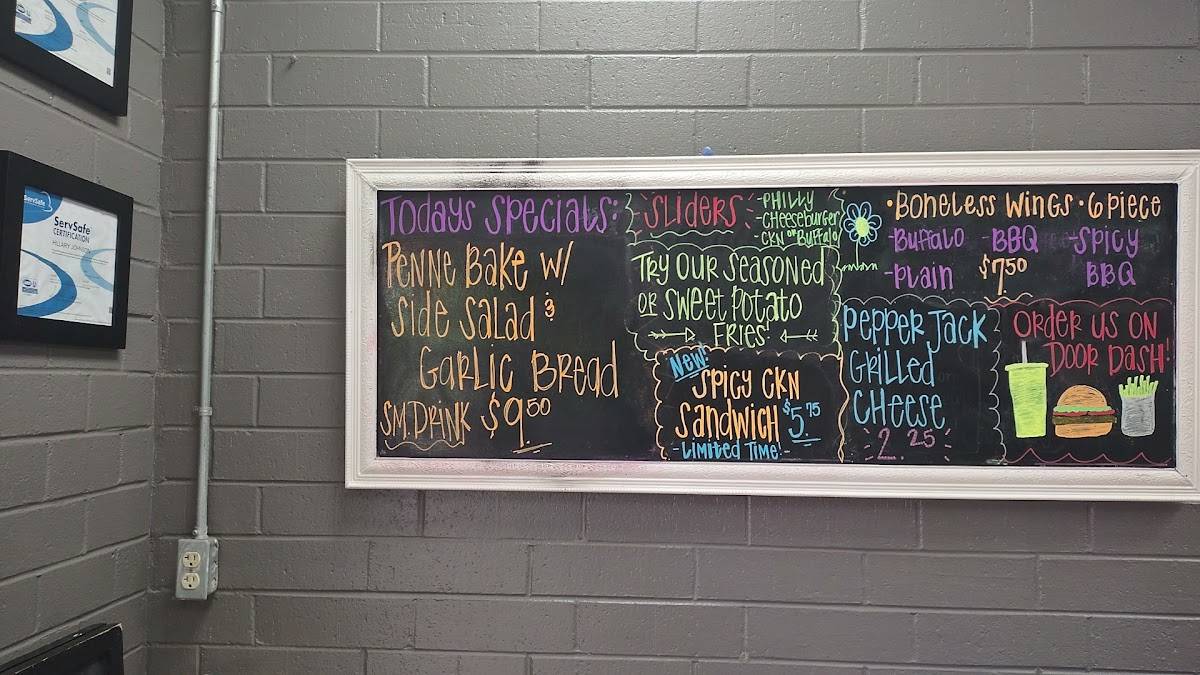 ServSafe
ServSafe
CERTIFICATION
HILLARY JOHNSON
Todays Specials:
Penne Bake w/
Side Salad &
Garlic Bread
Sm. Drink $9.50
Sliders
-Philly
-Cheeseburger
-Ckn or Buffalo
Try our seasoned
or sweet potato
fries!
New!
Spicy Ckn
Sandwich $5.75
-Limited Time!-
• Boneless Wings • 6 piece
-Buffalo -BBQ -Spicy
-Plain $7.50 BBQ
Pepper Jack
Grilled
Cheese
2.25
Order us on
Door Dash!